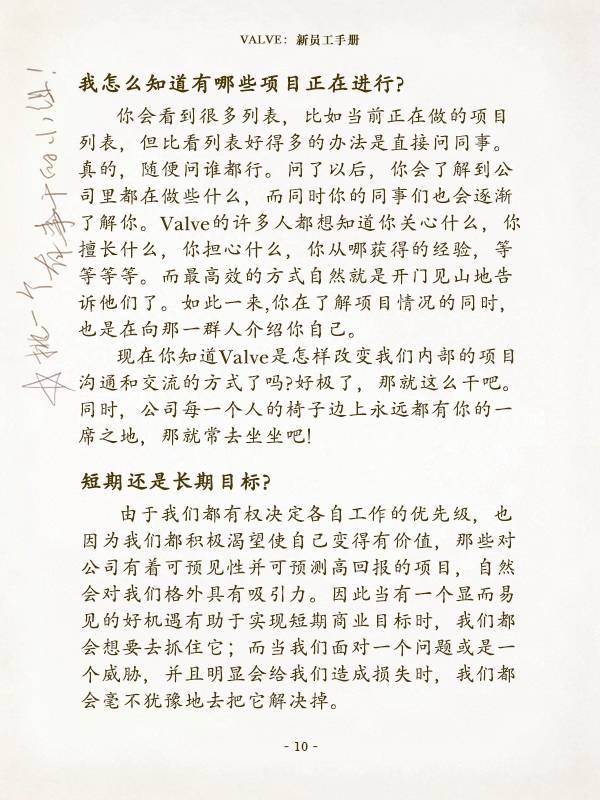 VALVE：新员工手册
我怎么知道有哪些项目正在进行?
你会看到很多列表，比如当前正在做的项目
列表，但比看列表好得多的办法是直接问同事。
真的，随便问谁都行。问了以后，你会了解到公
司里都在做些什么，而同时你的同事们也会逐渐
了解你。Valve的许多人都想知道你关心什么，你
擅长什么，你担心什么，你从哪获得的经验，等
等等等。而最高效的方式自然就是开门见山地告
诉他们了。如此一来,你在了解项目情况的同时，
也是在向那一群人介绍你自己。
现在你知道Valve是怎样改变我们内部的项目
沟通和交流的方式了吗?好极了，那就这么干吧。
同时，公司每一个人的椅子边上永远都有你的一
席之地，那就常去坐坐吧!
短期还是长期目标?
由于我们都有权决定各自工作的优先级，也
因为我们都积极渴望使自己变得有价值，那些对
公司有着可预见性并可预测高回报的项目，自然
会对我们格外具有吸引力。因此当有一个显而易
见的好机遇有助于实现短期商业目标时，我们都
会想要去抓住它；而当我们面对一个问题或是一
个威胁，并且明显会给我们造成损失时，我们都
会毫不犹豫地去把它解决掉。
- 10 -
挑一个有事干的小伙!